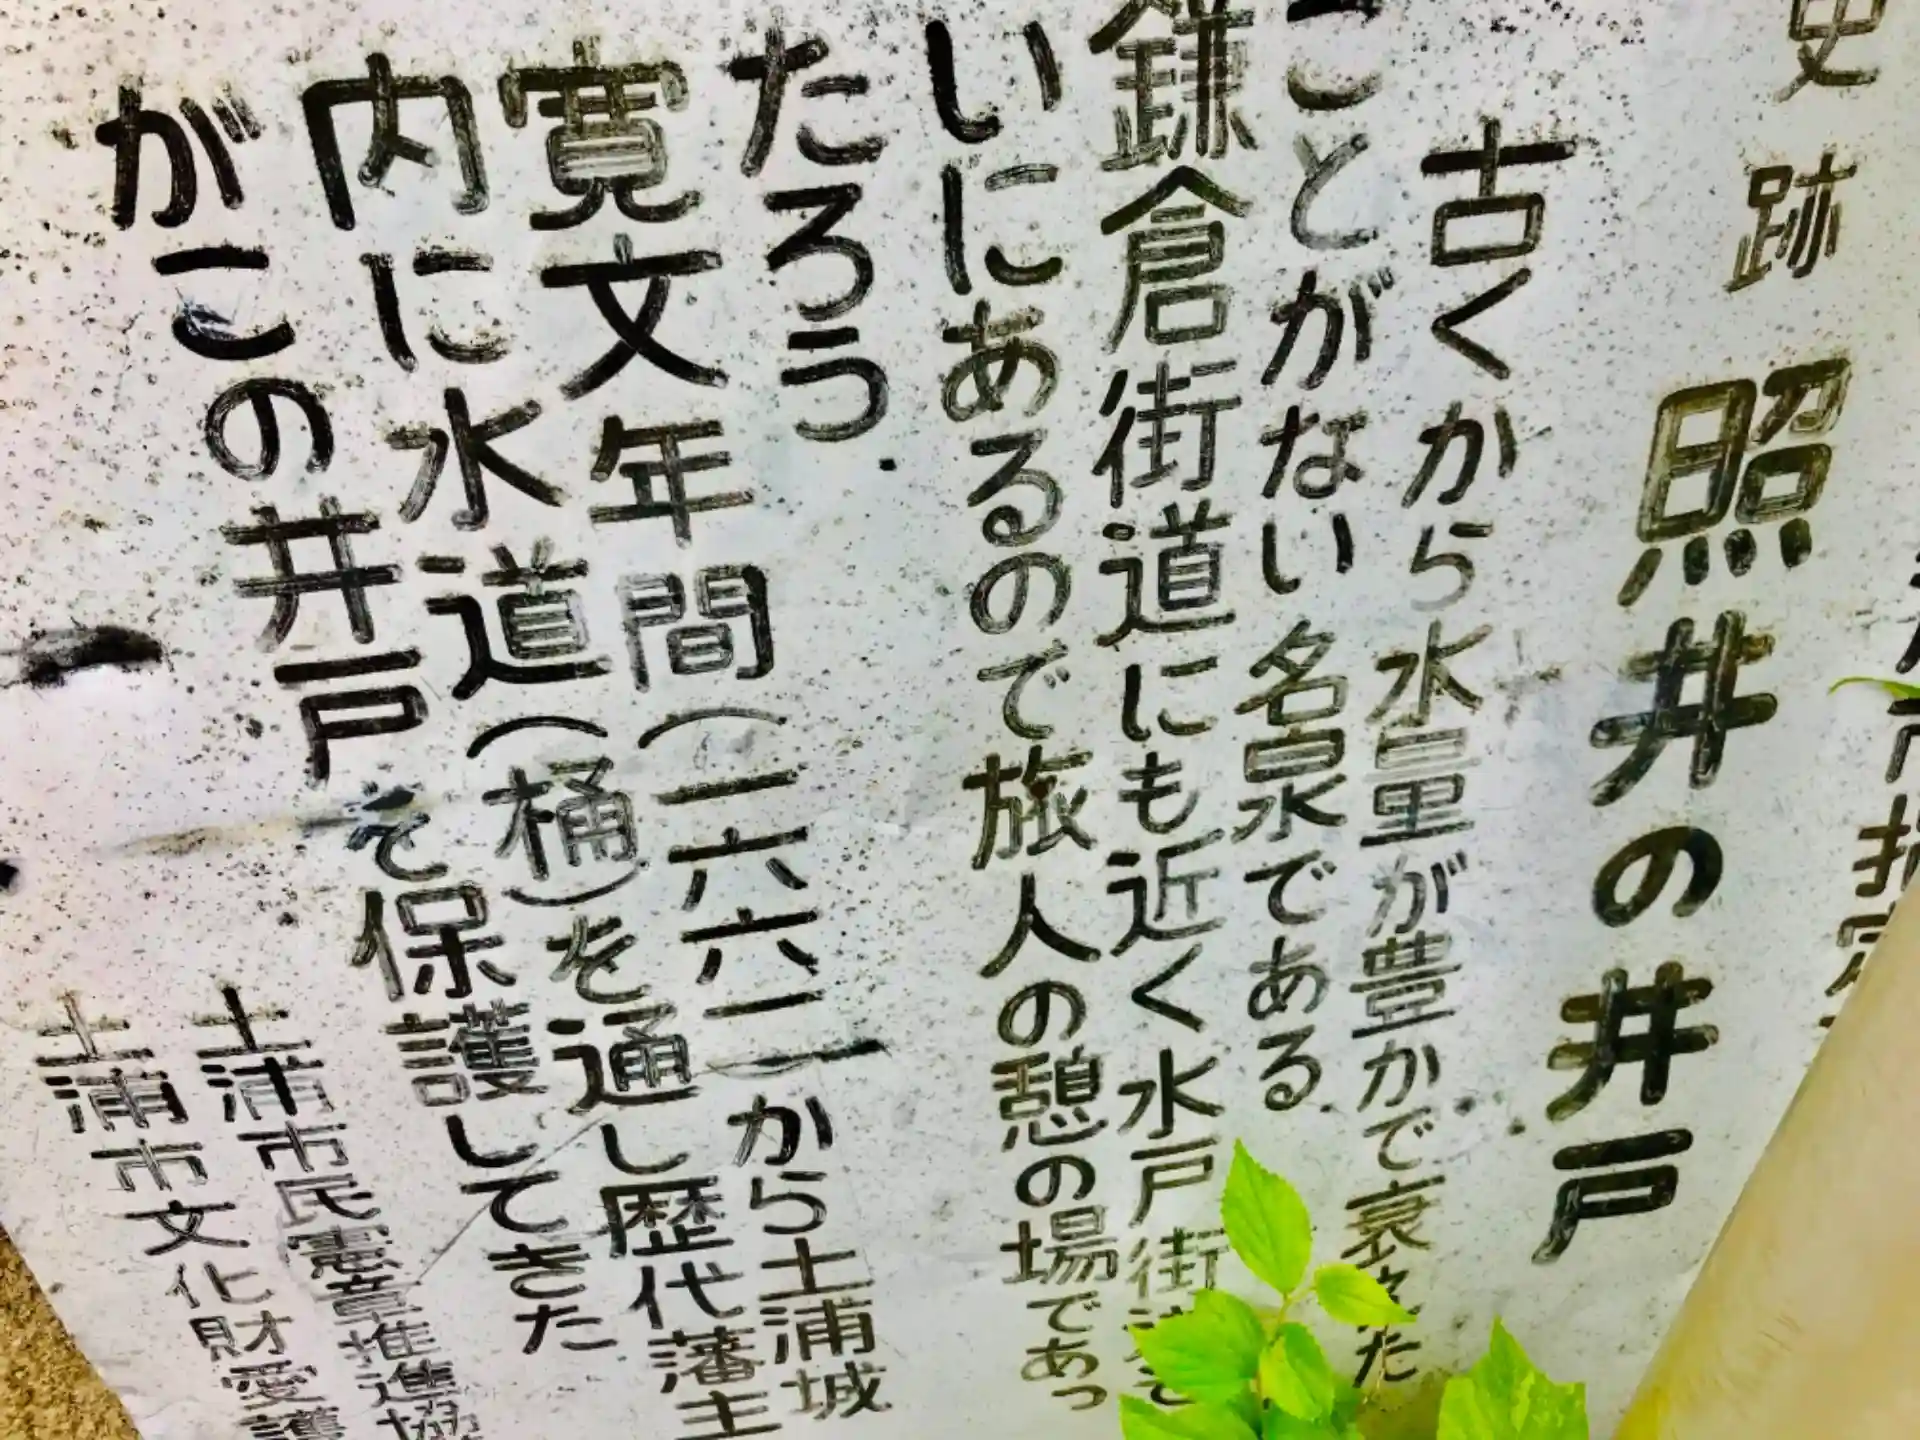 市指定
史跡 照井の井戸
古くから水量が豊かで衰えた
ことがない名泉である
鎌倉街道にも近く水戸街道そ
いにあるので旅人の憩の場であっ
たろう.
寛文年間(一六六二)から土浦城
内に水道(樋)を通し歴代藩主
がこの井戸を保護してきた
土浦市民憲章推進協
土浦市文化財愛護